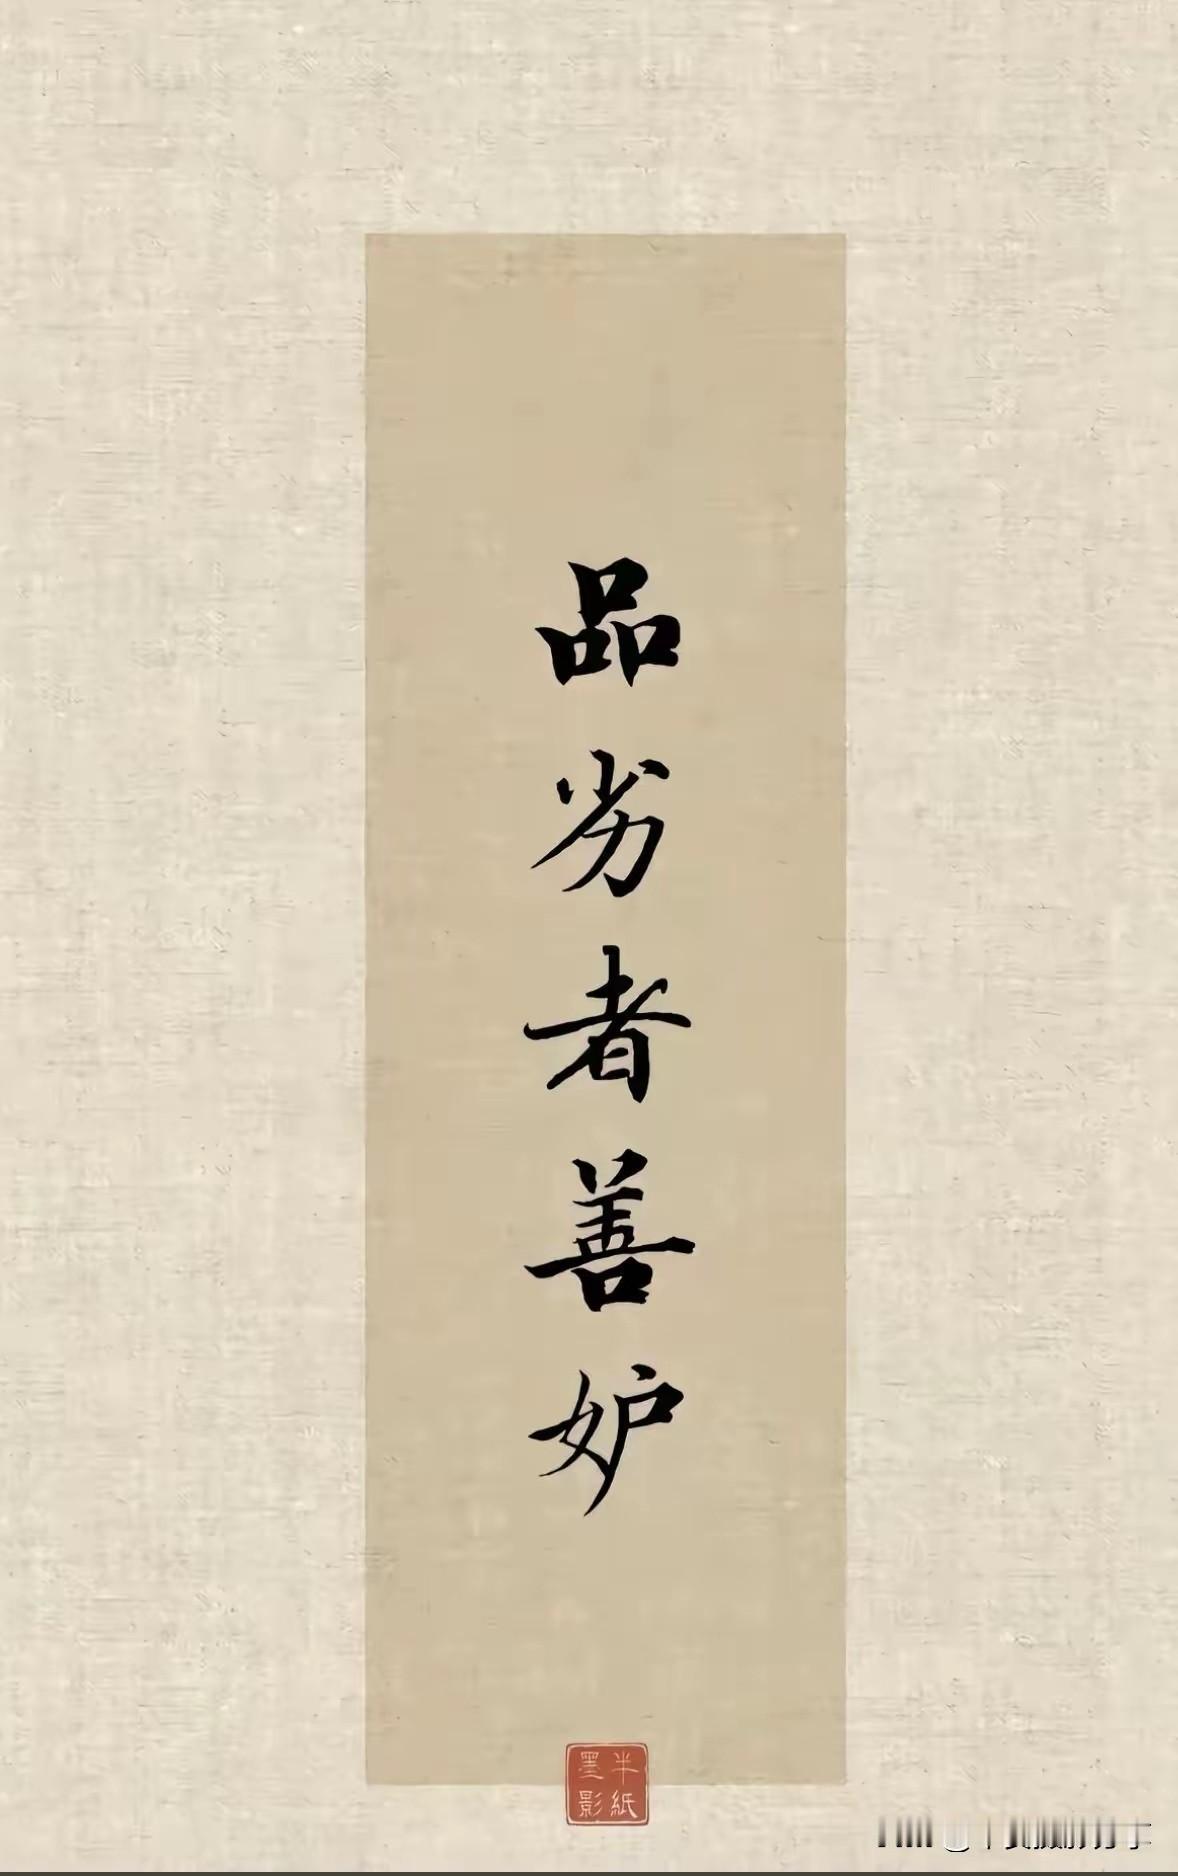 品劣者善妒
半紙
墨影